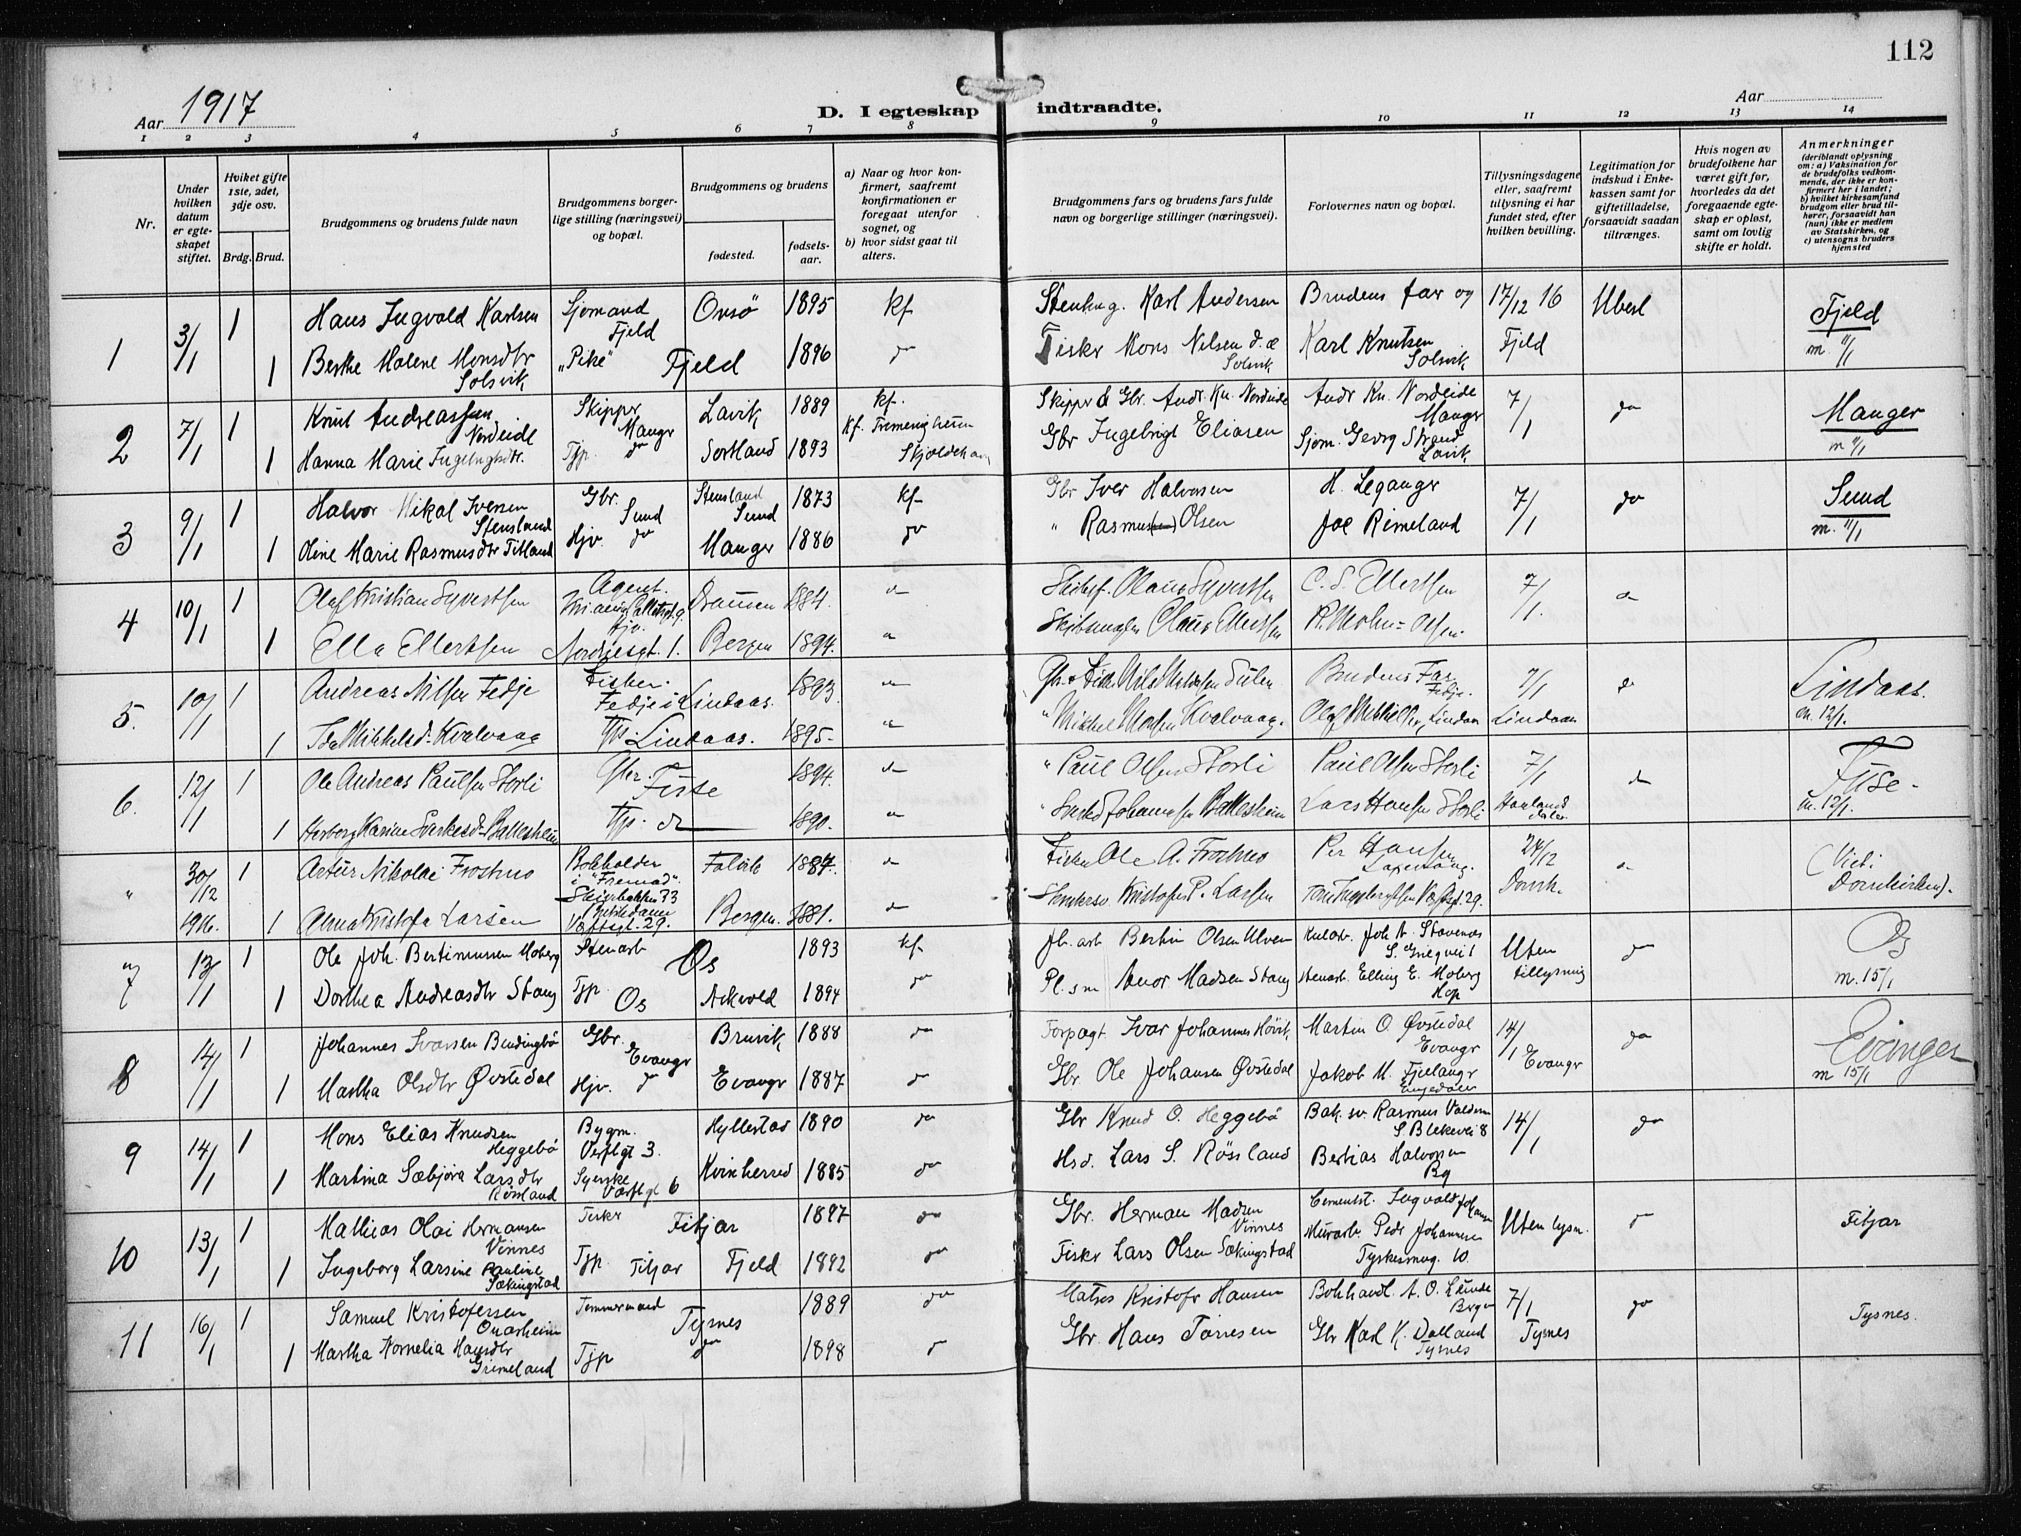 112
Aar 1917
D. I egteskap indtraadte.
Aar
1 2 3 4 5 6 7 8 9 10 11 12 13 14
Nr.
Under hvilken datum er egteskapet stiftet.
Hviket gifte 1ste, 2det, 3dje osv.
Brdg. Brud.
Brudgommens og brudens fulde navn
Brudgommens borgerlige stilling (næringsvei) og bopæl.
Brudgommens og brudens
fødested.
fødselsaar.
a) Naar og hvor konfirmert, saafremt konfirmationen er foregaat utenfor sognet, og
b) hvor sidst gaat til alters.
Brudgommens fars og brudens fars fulde navn og borgerlige stillinger (næringsvei).
Forlovernes navn og bopæl.
Tillysningsdagene eller, saafremt tillysning ei har fundet sted, efter hvilken bevilling.
Legitimation for indskud i Enkekassen samt for giftetilladelse, forsaavidt saadan tiltrænges.
Hvis nogen av brudefolkene har været gift før, hvorledes da det foregaaende egteskap er opløst, samt om lovlig skifte er holdt.
Anmerkninger
(deriblandt oplysning om: a) Vaksination for de brudefolks vedkommende, der ikke er konfirmert her i landet; b) hvilket kirkesamfund brudgom eller brud tilhører, forsaavidt han (hun) ikke er medlem av Statskirken, og c) utensogns bruders hjemsted
1 3/1 1 Hans Ingvald Karlsen Sjømand Fjeld Onsö 1895 kf Karl Andersen Brudens far og 17/12 16 Ubesl Fjeld
1 Berthe Malene Monsdtr Solsvik "Pike" Fjeld 1896 do Fisker Mons Nilsen Solsvik Karl Knutsen Solsvik Fjeld m. 11/1
2 7/1 1 Knut Andreassen Nordeide Skipper Manger Lavik 1889 kf. Skipper & Gbr. Andr. Kn. Nordeide Andr Kn. Nordeide Manger 7/1 do Manger
1 Hanna Marie Ingebrigtsdtr. Tjp. do Sortland 1893 Gbr Ingebrigt Eliasen Sjøm. Georg Strand Lavik
3 9/1 1 Halvor Nikal Iversen Stensland Gbr. Sund Stensland Sund 1873 kf Gbr Iver Halvorsen H. Leganger 7/1 do Sund
1 Oline Marie Rasmusdtr Titland Hjv. do Manger 1886 do " Rasmus Olsen Joe Rimeland m. 11/1
4 10/1 1 Olaf Kristian Syvertsen Agent. Dramen 1884. do Olaus Syvertsen C. S. Ellertsen 7/1. do
1 Ella Ellertsen Nordnesgt. 1. Bergen 1894. Olaus Ellertsen
5. 10/1 1 Andreas Nilsen Fedje Fisker. Fedje i Lindaas. 1893. Brudens Far Fedje. 7/1 do Lindaas.
1 Ida Mikkelsd. Kvalvaag Tjp. Lindaas. 1895. " Mikkel Monsen Kvalvaag. Lindaas m. 12/1.
6. 12/1 1 Ole Andreas Paulsen Storli Gbr. 1894. do " Paul Olsen Storli Paul Olsen Storli 7/1 do
1 Herborg Karine Sverkesd. Ballesheim Tjp. do 1890. Lars Hansen Storli m. 12/1.
" 30/12 1916. 1 Artur Nikolai Frostmo Bokholder i "Fremad". 1887. do Fisker Ole A. Frostmo Per Hansen 24/12 (Viet i Domkirken).
1 Alma Kristofa Larsen Bergen. 1881. do Kristofer P. Larsen Domk.
7 13/1 1 Ole Joh. Bertinussen Moberg Stenarb Os 1893 kf. Bertin Olsen Ulven Joh A. Stavenes Uten do Os
1 Dorthea Andreasdtr Stang Tjp Os Askvold 1894 do Madsen Stang Stenarb. Elling E. Moberg Hop tillysning m. 15/1
8 14/1 1 Johannes Ivarsen Bendingbø Gbr. Evanger Bruvik 1888 do Forpagt. Ivar Johannes Høvik Martin O. Øvstedal Evanger 14/1 do Evanger
1 Martha Olsdtr Øvstedal Hjv. do Evangr 1887 do Gbr. Ole Johansen Øvstedal Jakob M. Fjelangr Evangr m 15/1
9 14/1 1 Mons Elias Knudsen Heggebø Bygm. Verftgt 3. Hyllestad 1890 do Gbr Knud O. Heggebö Rasmus S Blekevei 8 14/1 do
1 Martina Sæbjøra Larsdtr Røssland Syerske Værftgt 6 Kvinherred 1885 do Hsd. Lars S. Røssland Bertias Halvorsen Bg
10 13/1 1 Mathias Olai Hermansen Vinnes Fisker Fitjar 1897 do Gbr. Herman Madsen Vinnes Cementst. Ingvald Johansen Uten lysn. do Fitjar
1 Ingeborg Larsine Pauline Sækingstad Tjp Fitjar Fjeld 1892 do Fisker Lars Olsen Sækingstad Murarb. Peder Johannesen Tyskesmug. 10
11 16/1 1 Samuel Kristofersen Onarheim Tømmermand Tysnes 1889 do Matros Kristofer Hansen Bokhandl. A. O. Lunde Bergen 7/1 do Tysnes.
1 Martha Kornelia Hansdtr Grimeland Tjp do 1898 do Gbr. Hans Tørresen Gbr Karl K. Dalland Tysnes Tysnes